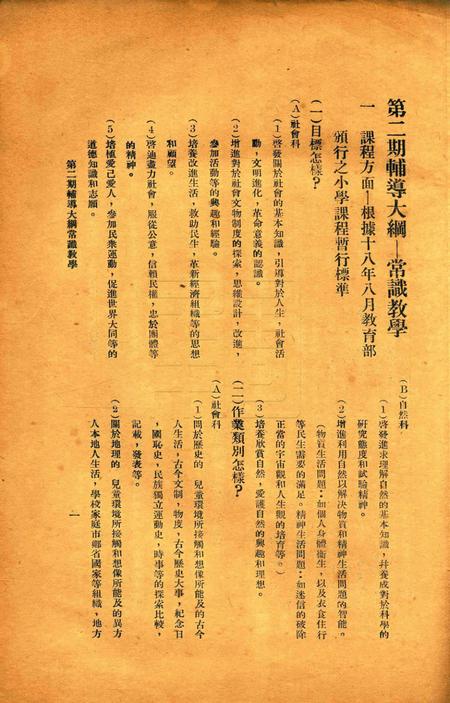 第二期輔導大綱—常識教學
一　課程方面—根據十八年八月教育部
頒行之小學課程暫行標準
(一)目標怎樣？
(A)社會科
(1)啓發關於社會的基本知識，引導對於人生，社會活
動，文明進化，革命意義的認識。
(2)增進對於社會文物制度的探索，思維設計，改進，
參加活動等的興趣和經驗。
(3)培養改進生活，救助民生，革新經濟組織等的思想
和願望。
(4)啓迪盡力社會，服從公意，信賴民權，忠於團體等
的精神。
(5)培植愛己愛人，參加民衆運動，促進世界大同等的
道德知識和志願。
(B)自然科
(1)啓發進求理解自然的基本知識，幷養成對於科學的
研究態度和試驗精神。
(2)增進利用自然以解決物質和精神生活問題的智能。
(物質生活問題：如個人身體衞生，以及衣食住行
等民生需要的滿足。精神生活問題：如迷信的破除
正當的宇宙觀和人生觀的培育等。)
(3)培養欣賞自然，愛護自然的興趣和理想。
(二)作業類別怎樣？
(A)社會科
(1)關於歷史的　兒童環境所接觸和想像所能及的古今
人生活，古今文制，物度，古今歷史大事，紀念日
，國恥史，民族獨立運動史，時事等的探索比較，
記載，發表等。
(2)關於地理的　兒童環境所接觸和想像所能及的異方
人本地人生活，學校家庭市鄉省國家等組織，地方
第二期輔導大綱常識教學
一